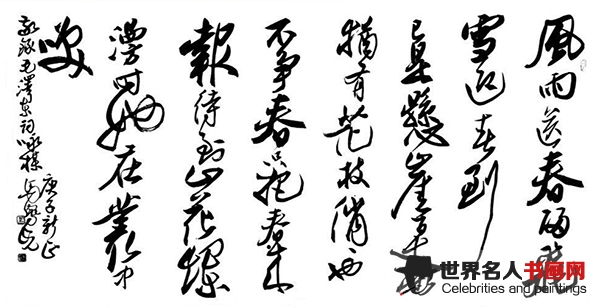 風雨送春归飛
雪迎春到
已是懸崖百丈冰
猶有花枝俏也
不争春只把春来
報待到山花爛
漫时她在叢中
笑
敬錄毛澤東词咏梅
庚子新正
世界名人书画网
Celebrities and paintings